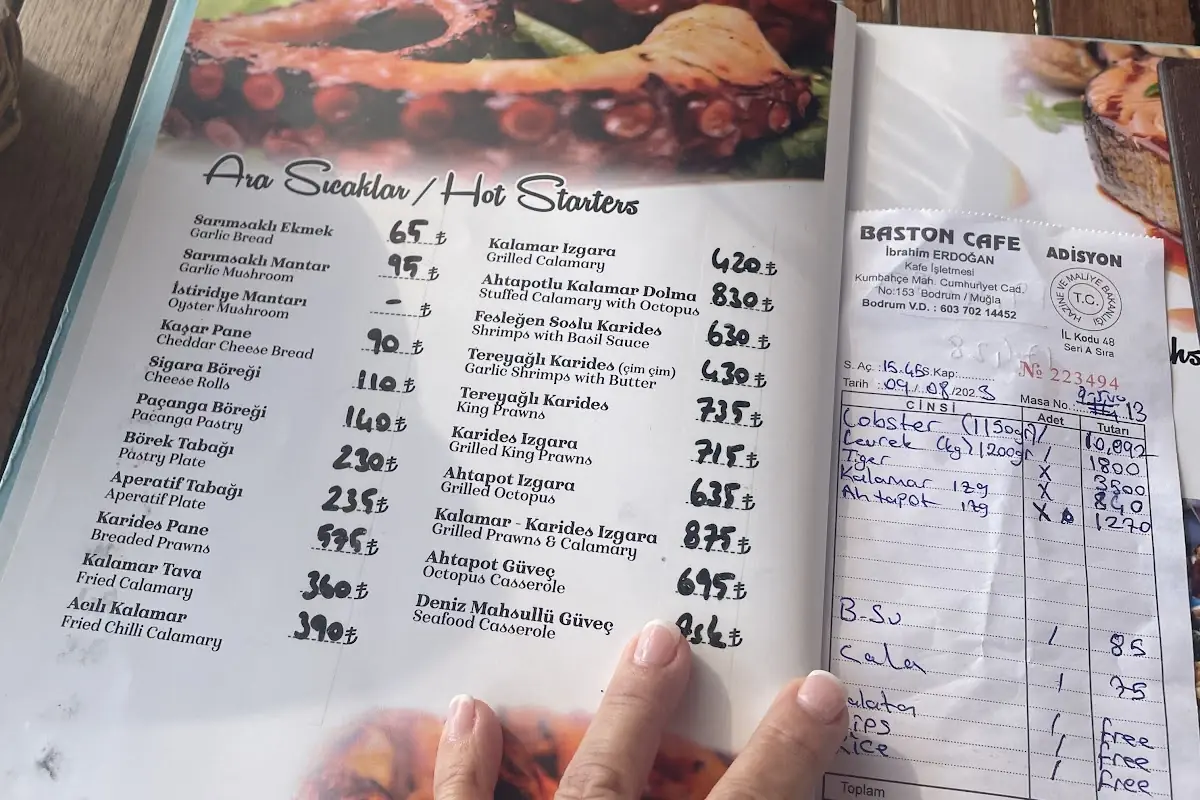 Ara Sıcaklar / Hot Starters
Sarımsaklı Ekmek 65 ₺
Garlic Bread
Sarımsaklı Mantar 95 ₺
Garlic Mushroom
İstiridye Mantarı - ₺
Oyster Mushroom
Kaşar Pane 90 ₺
Cheddar Cheese Bread
Sigara Böreği 110 ₺
Cheese Rolls
Paçanga Böreği 140 ₺
Paçanga Pastry
Börek Tabağı 230 ₺
Pastry Plate
Aperatif Tabağı 235 ₺
Aperatif Plate
Karides Pane 575 ₺
Breaded Prawns
Kalamar Tava 360 ₺
Fried Calamary
Acılı Kalamar 390 ₺
Fried Chilli Calamary
Kalamar Izgara 420 ₺
Grilled Calamary
Ahtapotlu Kalamar Dolma 830 ₺
Stuffed Calamary with Octopus
Fesleğen Soslu Karides 630 ₺
Shrimps with Basil Sauce
Tereyağlı Karides (çim çim) 430 ₺
Garlic Shrimps with Butter
Tereyağlı Karides 735 ₺
King Prawns
Karides Izgara 715 ₺
Grilled King Prawns
Ahtapot Izgara 635 ₺
Grilled Octopus
Kalamar - Karides Izgara 875 ₺
Grilled Prawns & Calamary
Ahtapot Güveç 695 ₺
Octopus Casserole
Deniz Mahsullü Güveç Ask ₺
Seafood Casserole
BASTON CAFE
İbrahim ERDOĞAN
Kafe İşletmesi
Kumbahçe Mah. Cumhuriyet Cad.
No:153 Bodrum / Muğla
Bodrum V.D. : 603 702 14452
ADİSYON
HAZİNE VE MALİYE BAKANLIĞI
T.C.
İL Kodu 48
Seri A Sıra
S. Aç.: 15.45 S.Kap:
№ 223494
Tarih : 09/08/2023 Masa No.: 13
CİNSİ Adet Tutarı
Lobster (1150gr) 1 10,092
Levrek (kg) 1200gr 1 1800
Tiger X 3500
Kalamar 1zg X 840
Ahtapot 1zg X 1270
B-Su 1 85
Cala 1 75
alata 1 free
ips 1 free
Rice 1 free
Toplam